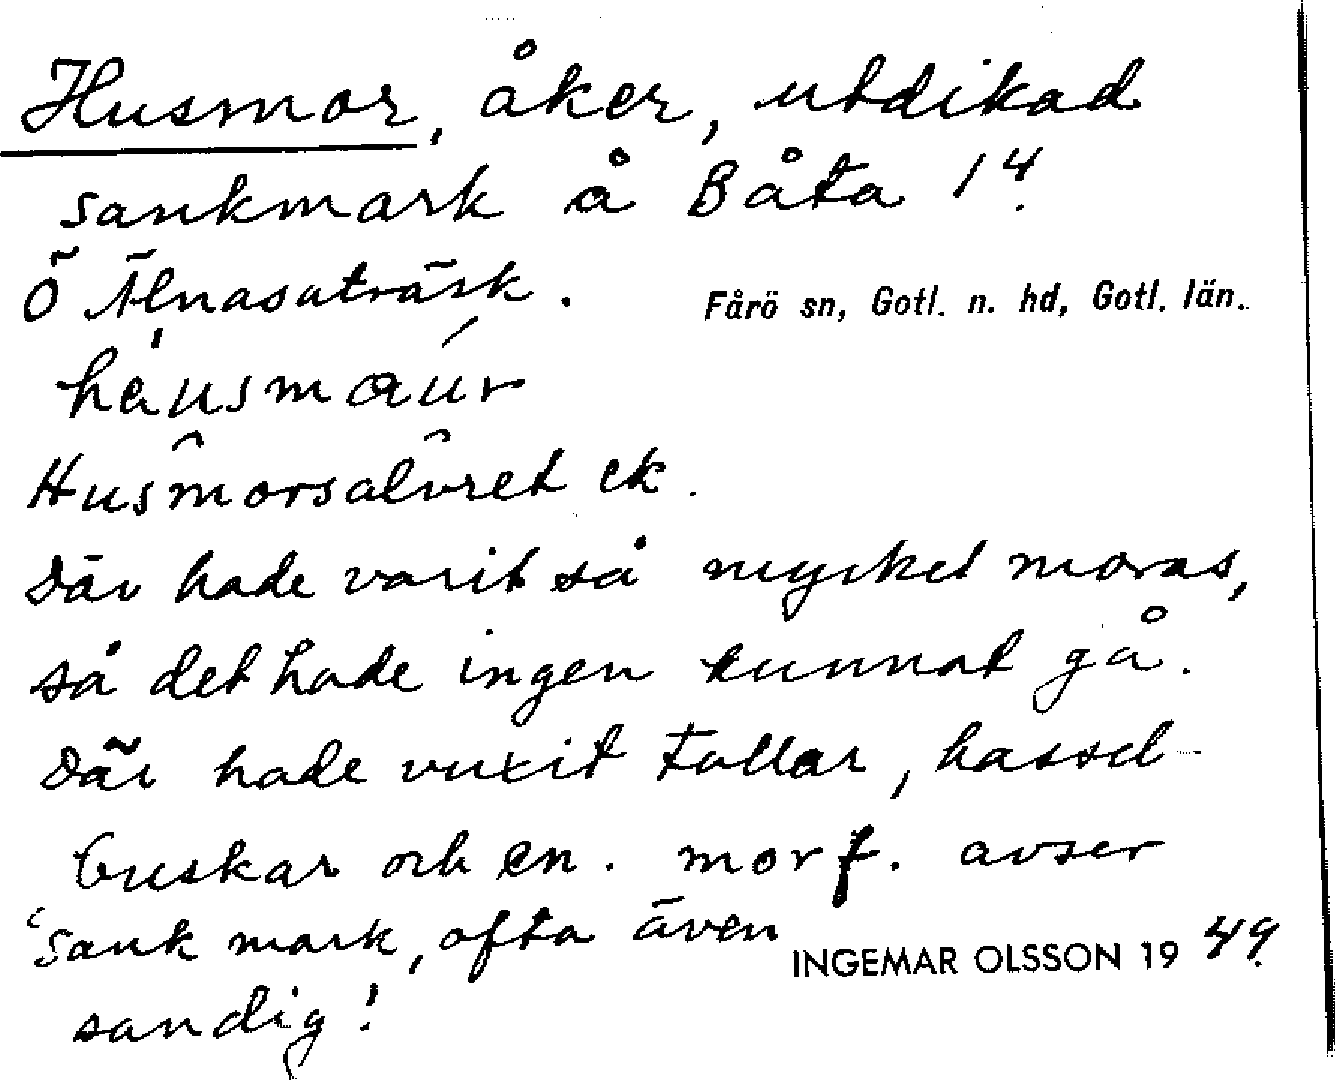 Husmor, åker, utdikad
sankmark å Båta 14.
Ö Älnasaträsk. Fårö sn, Gotl. n. hd, Gotl. län.
hausmaur
Husmorsalvret ek.
Där hade varit så mycket moras,
så det hade ingen kunnat gå.
Där hade vuxit tallar, hassel-
buskar och en. mor f. avser
'sank mark, ofta även
sandig'! INGEMAR OLSSON 1949.